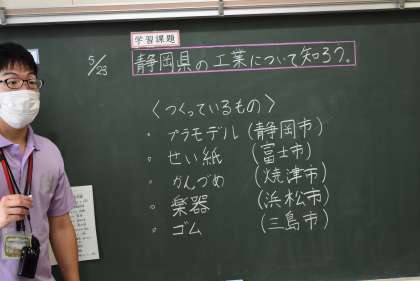 学習課題
5/23
静岡県の工業について知ろう。
〈つくっているもの〉
・プラモデル(静岡市)
・せい紙(富士市)
・かんづめ(焼津市)
・楽器(浜松市)
・ゴム(三島市)